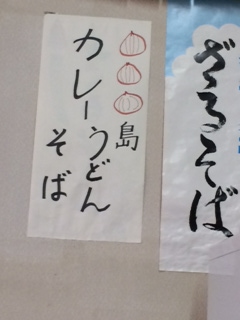 島
カレーうどん
そば
ざるそば